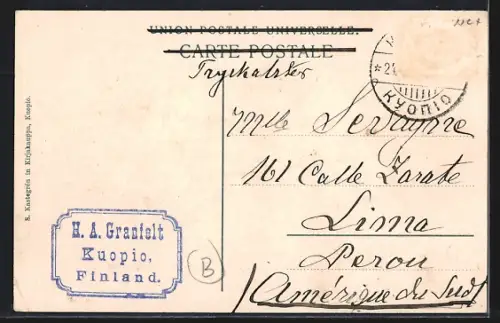 UNION POSTALE UNIVERSELLE.
CARTE POSTALE
Tryckalster
КУОПІО
Mlle Servagne
161 Calle Zarate
Lima
Perou
(Amérique du Sud)
H. A. Granfelt
Kuopio,
Finland.
B
S. Kastegrén in Kirjakauppa, Kuopio.